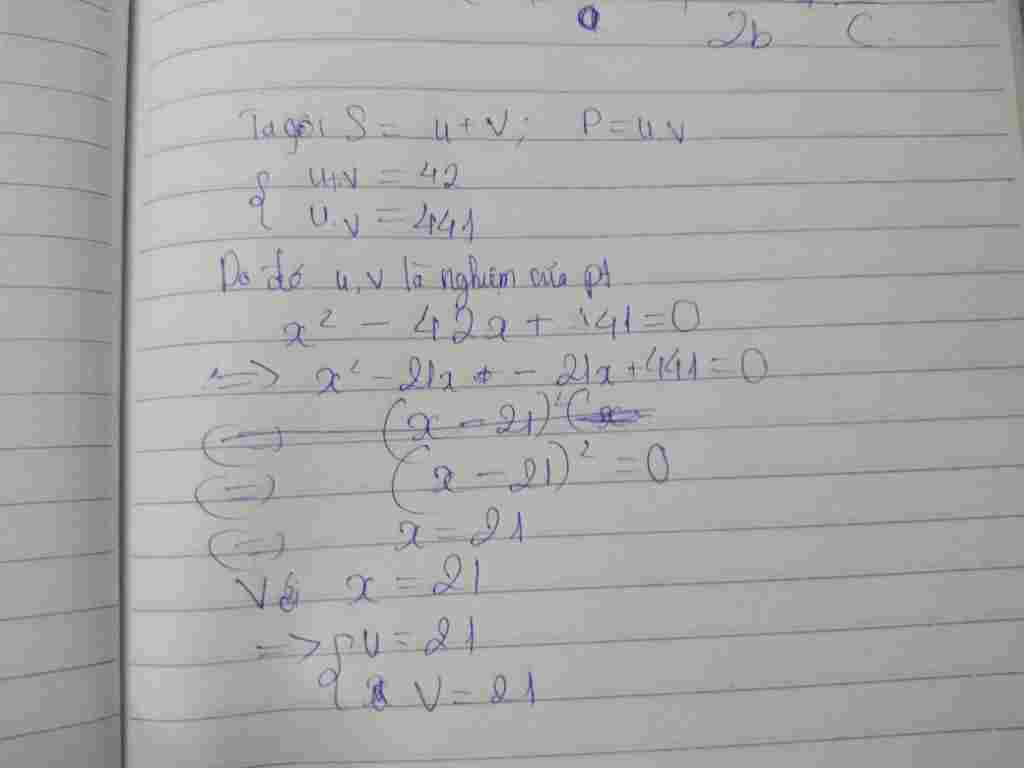 2b C
Ta gọi S = u + v; P = u.v
{ u+v = 42
u.v = 441
Do đó u, v là nghiệm của pt
x² - 42x + 441 = 0
<=> x² - 21x + - 21x + 441 = 0
(=) (x - 21)² (x
(=) (x - 21)² = 0
(=) x = 21
Với x = 21
=> { u = 21
v = 21